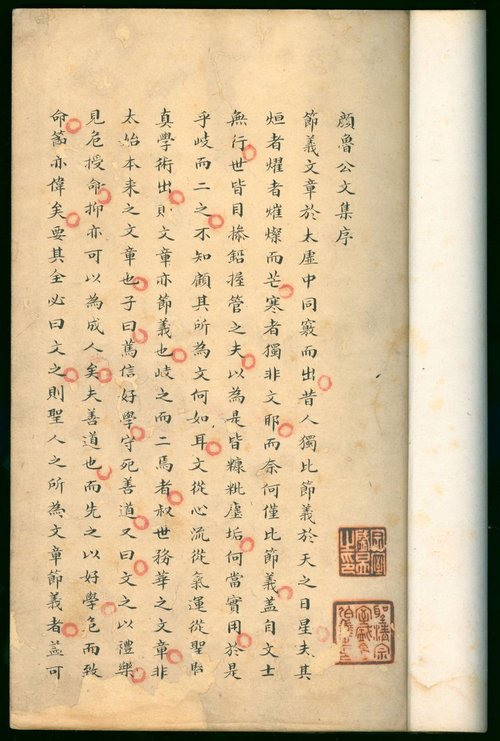 顏魯公文集序
節義文章於太虛中同竅而出昔人獨比節義於天之日星夫其
烜者燿者熣燦而芒寒者獨非文耶而奈何僅比節義蓋自文士
無行世皆目摻鉛握管之夫以為是皆糠粃塵垢何當實用於是
乎歧而二之不知顧其所為文何如耳文從心流從氣運從聖賢
真學術出則文章亦節義也歧之而二焉者叔世務華之文章非
太始本來之文章也子曰篤信好學守死善道又曰文之以禮樂
見危授命抑亦可以為成人矣夫善道也而先之以好學危而致
命節亦偉矣要其全必曰文之則聖人之所為文章節義者蓋可